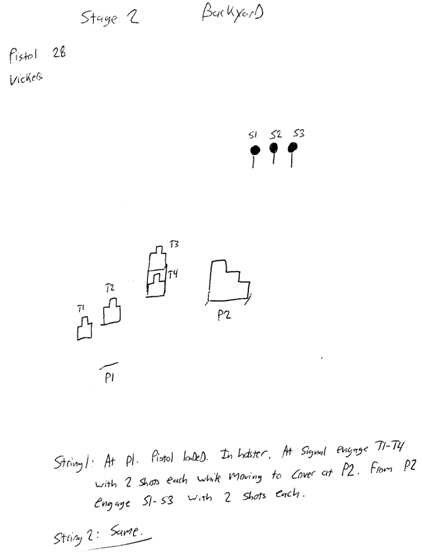 Stage 2 Backyard
Pistol 28
Vickers
S1 S2 S3
T3
T4
T2
T1
P2
P1
String 1: At P1. Pistol loaded. In holster. At signal engage T1-T4
with 2 shots each while moving to cover at P2. From P2
engage S1-S3 with 2 shots each.
String 2: Same.